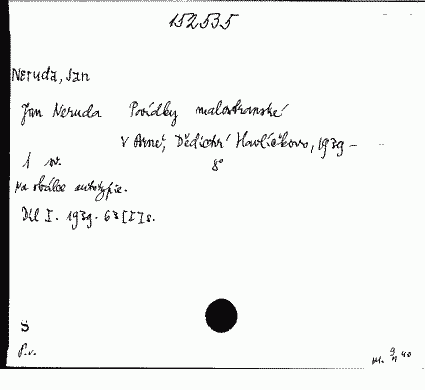 152535
Neruda, Jan
Jan Neruda Povídky malostranské
V Brně, Dědictví Havlíčkovo, 1939 –
8°
1 sv.
Na obálce autotypie.
Díl I. 1939. 63 [I] s.
S
P.v.